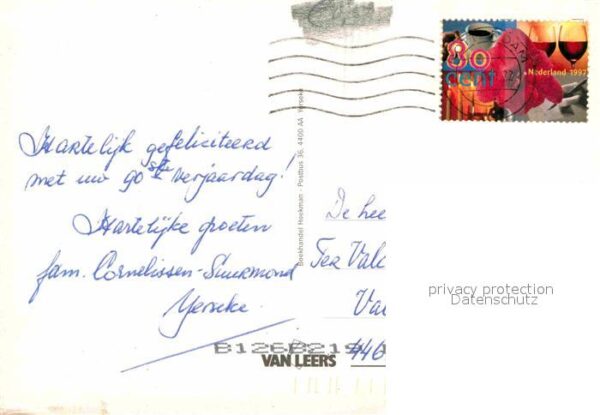 80
cent
Nederland 1997
Hartelijk gefeliciteerd
met uw 90ste verjaardag!
Hartelijke groeten
fam. Cornelissen-Suurmond
Yerseke
Boekhandel Hoekman - Postbus 36, 4400 AA Yerseke
De hee
Ter Valc
Va
privacy protection
Datenschutz
446
B126B219
VAN LEERS